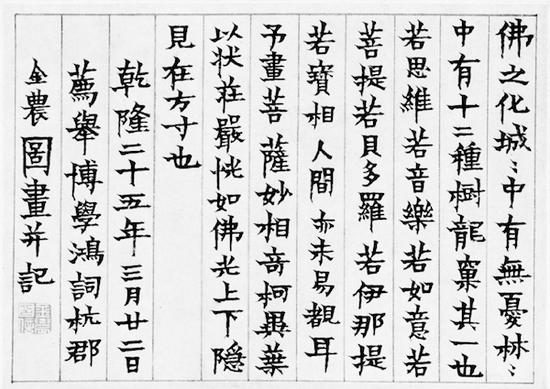 佛之化城〻中有無憂林〻
中有十二種樹龍窠其一也
若思維若音樂若如意若
菩提若貝多羅若伊那提
若寶相人間亦未易覩耳
予畫菩薩妙相奇柯異葉
以狀莊嚴恍如佛光上下隱
見在方寸也
乾隆二十五年三月廿二日
薦舉博學鴻詞杭郡
金農圖畫并記